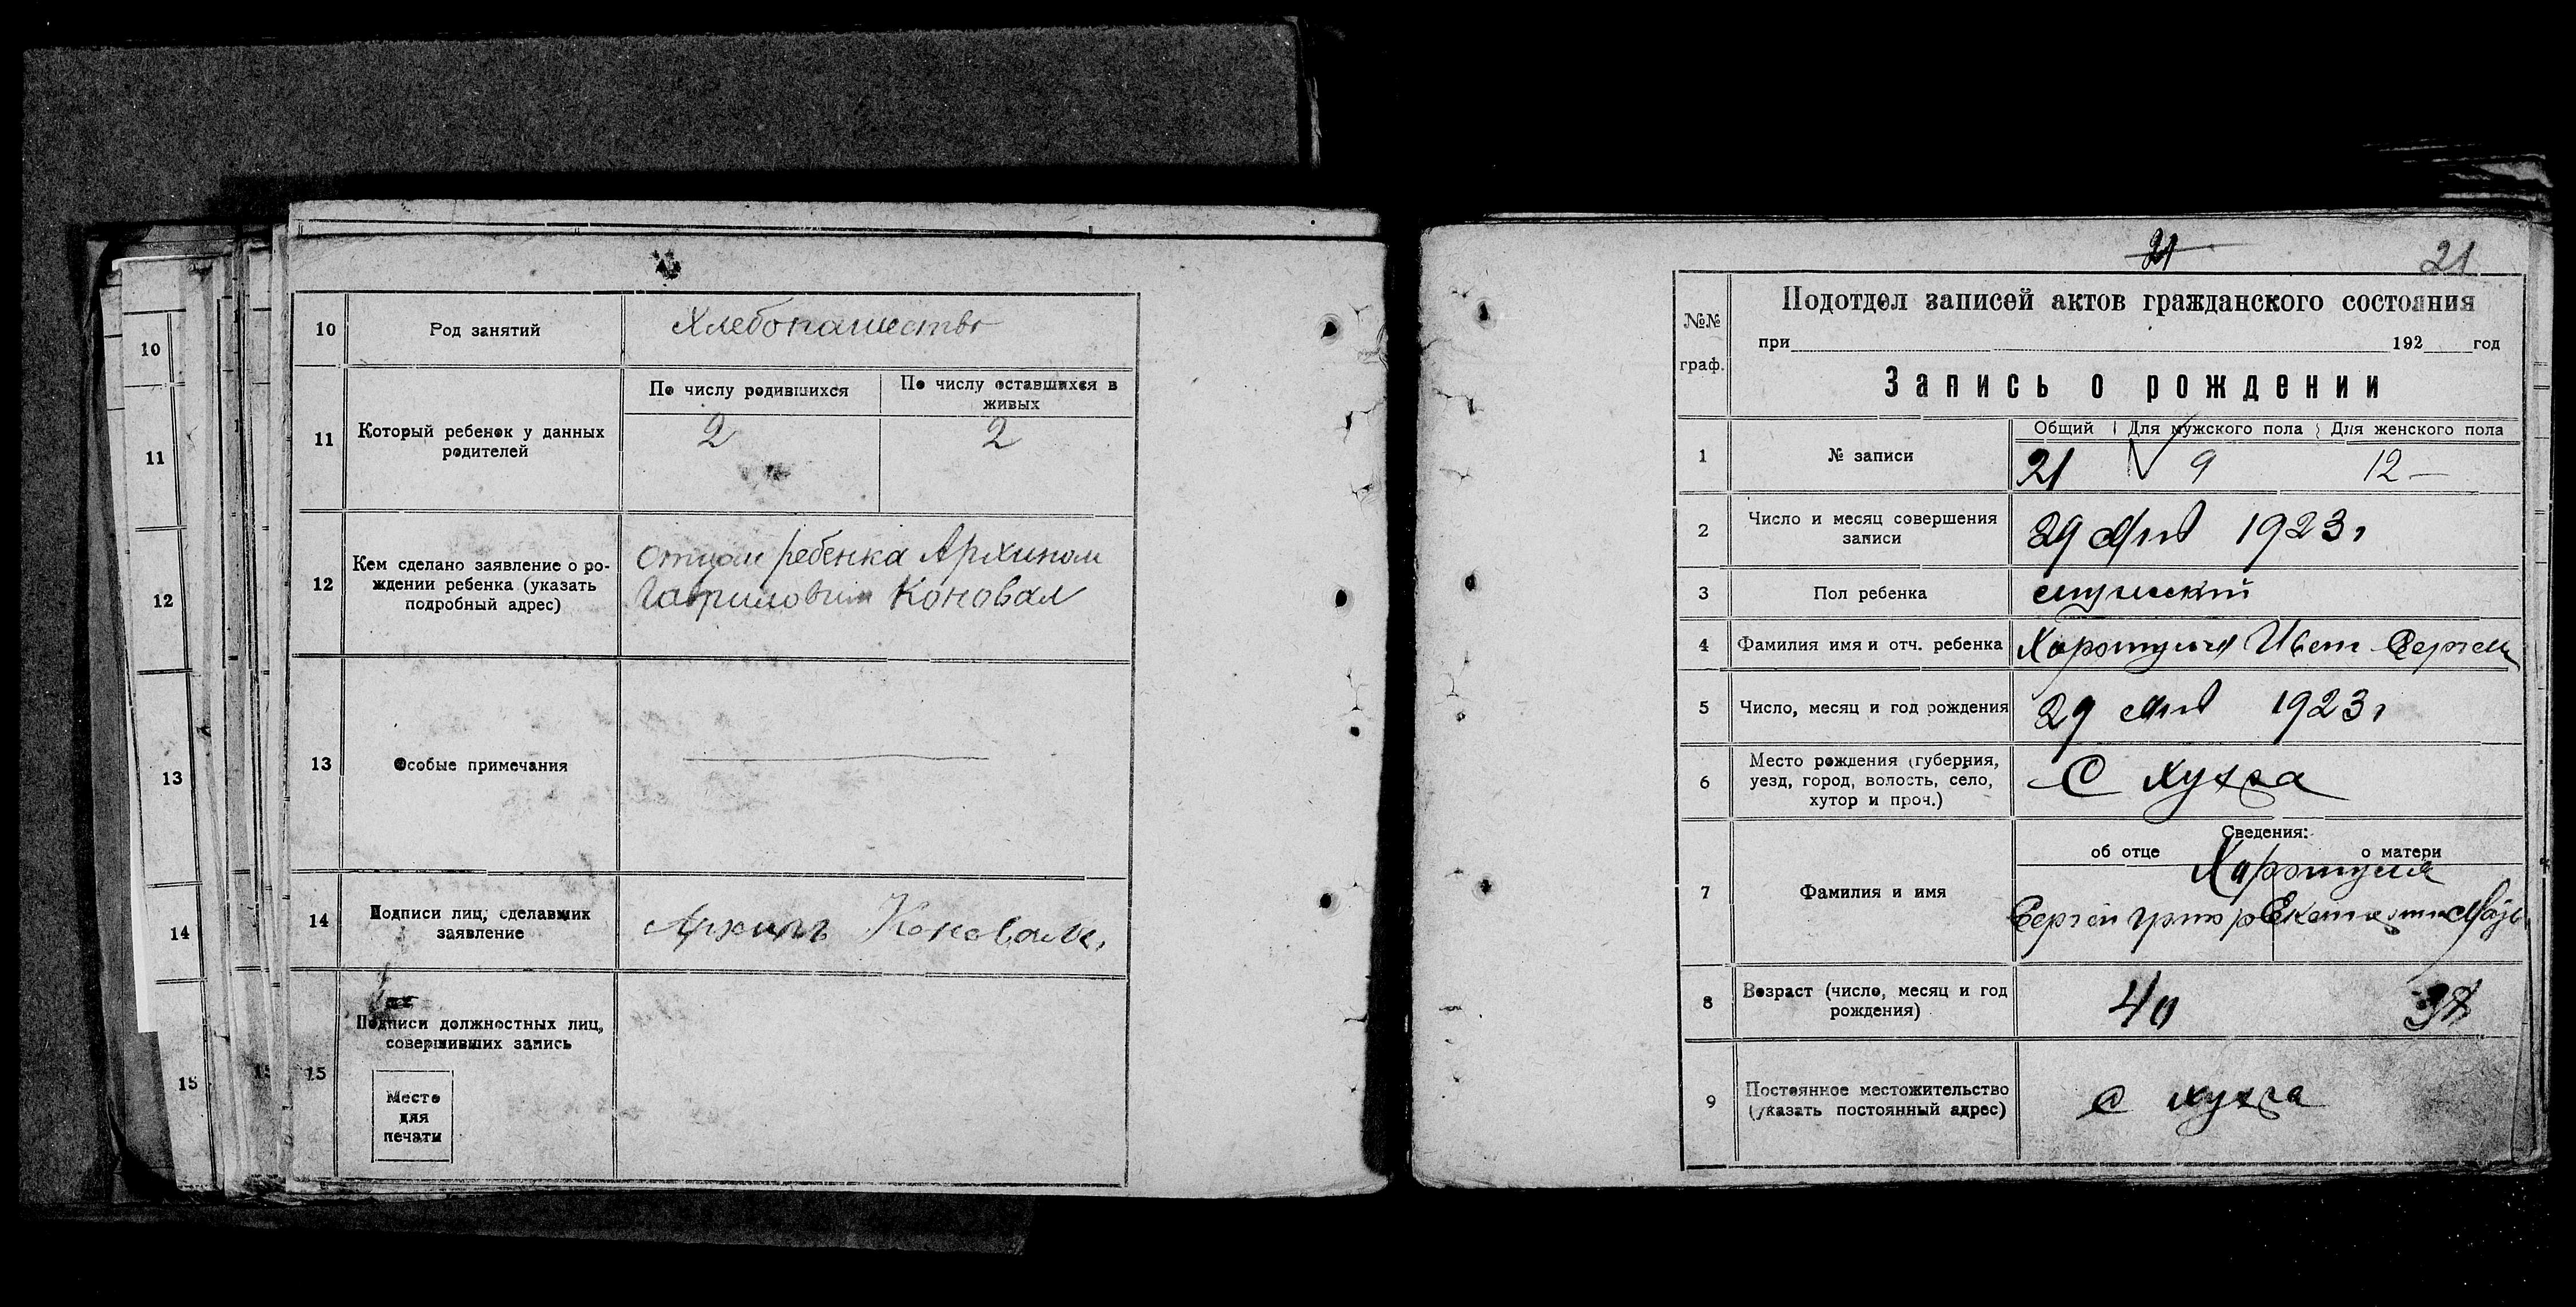 10
11
12
13
14
15
10 Род занятий Хлебопашество
11 Который ребенок у данных родителей
По числу родившихся По числу оставшихся в живых
2 2
12 Кем сделано заявление о рождении ребенка (указать подробный адрес)
Отцом ребенка Архипом
Гавриловым Коновал
13 Особые примечания
14 Подписи лиц, сделавших заявление
Архипъ Коновал
15
Подписи должностных лиц, совершивших запись
Место
для
печати
21 21
№№ граф.
Подотдел записей актов гражданского состояния
при 192 год
Запись о рождении
1 № записи
Общий Для мужского пола Для женского пола
21 9 12 —
2 Число и месяц совершения записи
29 1923 г
3 Пол ребенка мужской
4 Фамилия имя и отч. ребенка
5 Число, месяц и год рождения
29 1923 г
6 Место рождения (губерния, уезд, город, волость, село, хутор и проч.)
С
Сведения:
об отце о матери
7 Фамилия и имя
Сергей
8 Возраст (число, месяц и год рождения)
40
9 Постоянное местожительство (указать постоянный адрес)
с